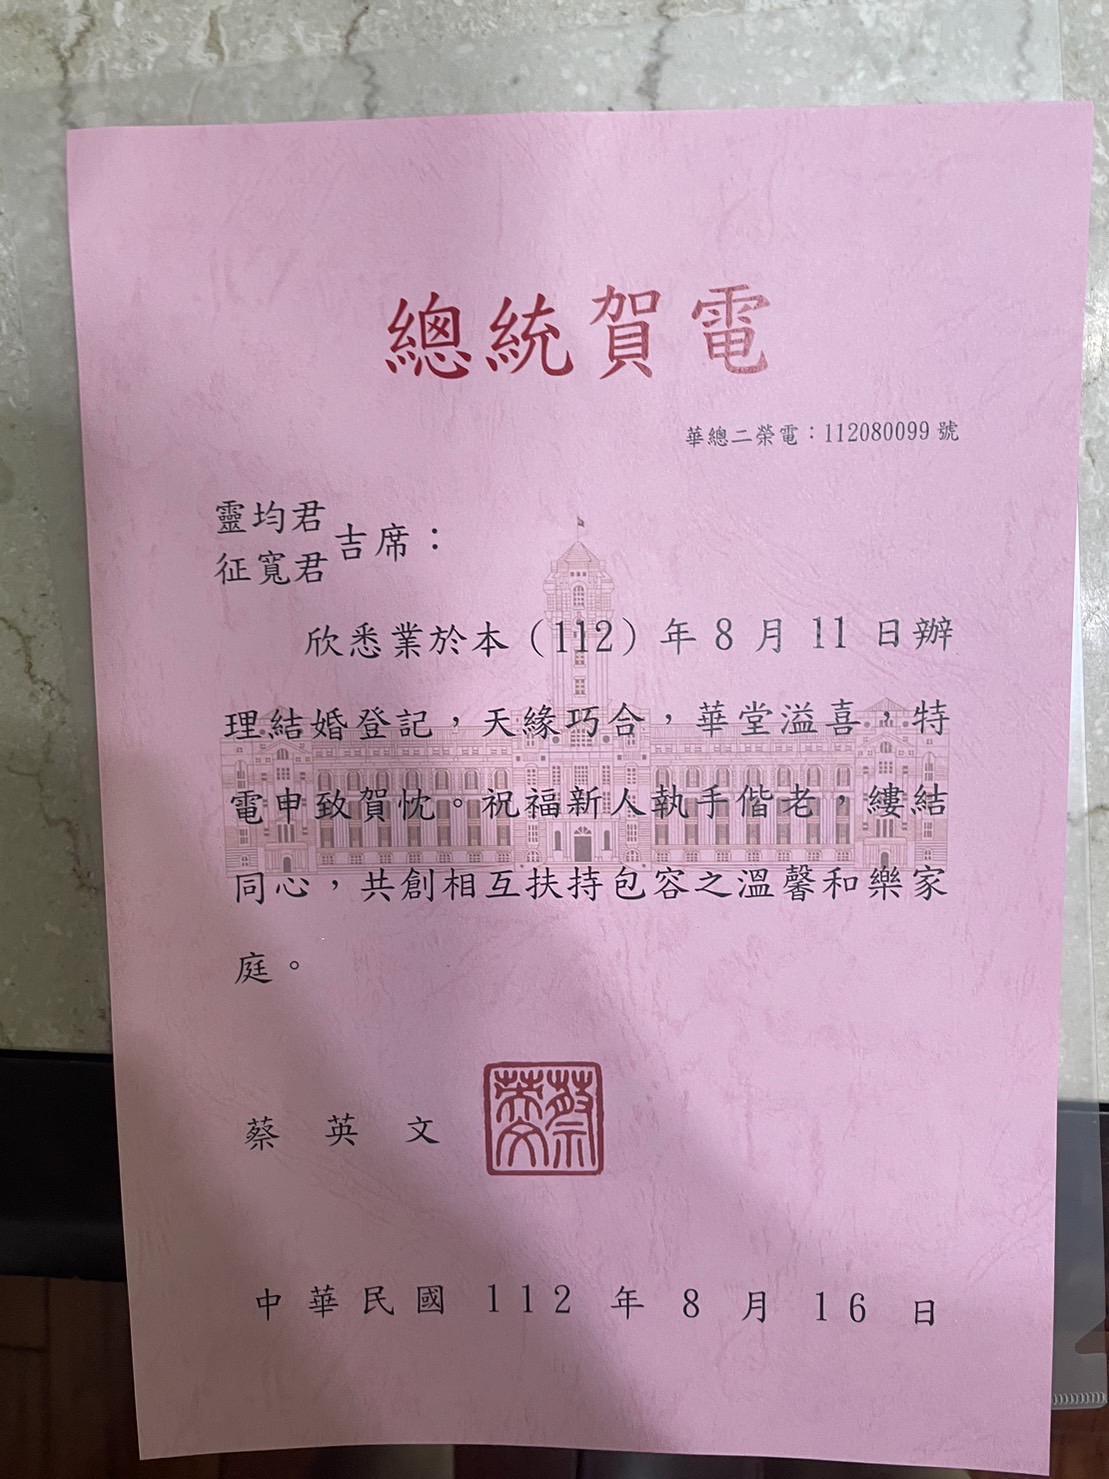 總統賀電
華總二榮電：112080099號
靈均君
征寬君
吉席：
欣悉業於本（112）年 8 月 11 日辦
理結婚登記，天緣巧合，華堂溢喜，特
電申致賀忱。祝福新人執手偕老，縷結
同心，共創相互扶持包容之溫馨和樂家
庭。
蔡英文
蔡英文
中華民國 112 年 8 月 16 日